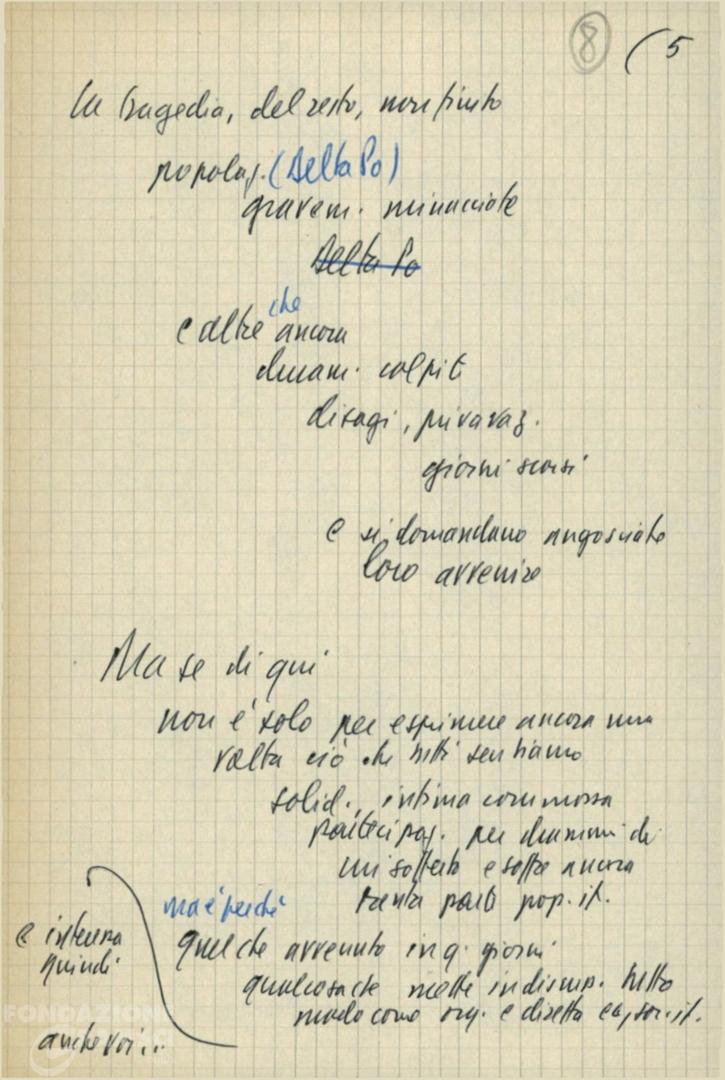 8 (5
La tragedia, del resto, non finita
popolaz. (Delta Po)
gravem. minacciate
Delta Po
che
e altre ancora
duram. colpite
disagi, privaz.
giorni scorsi
e si domandano angosciate
loro avvenire
Ma se di qui
non è solo per esprimere ancora una
volta ciò che tutti sentiamo
solid., intima commossa
partecipaz. per drammi di
cui sofferto e soffre ancora
tanta parte pop. it.
ma è perché
quel che avvenuto in q. giorni
qualcosa che mette in discuss. tutto
modo come org. e diretta ec, soc. it.
e interessa
quindi
anche voi...
FONDAZION